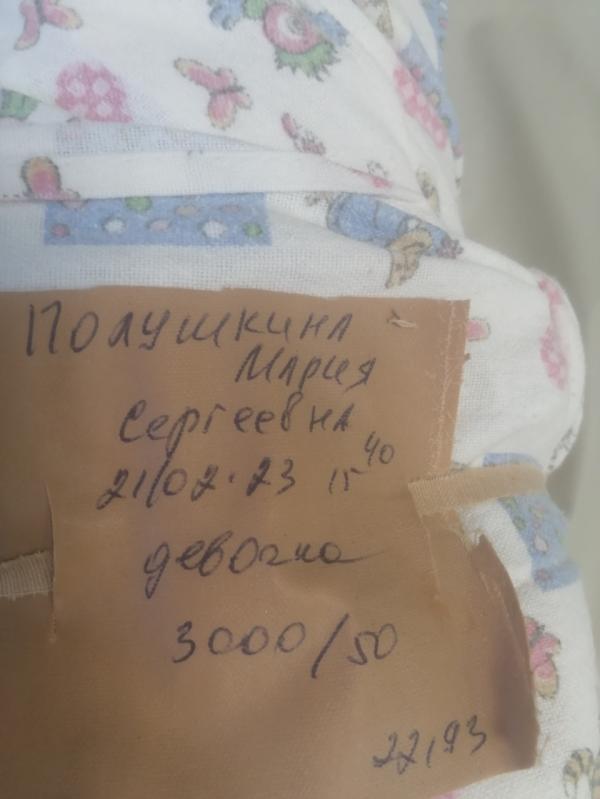 Полушкина
Мария
Сергеевна
21/02.23 15 40
девочка
3000/50
22,93